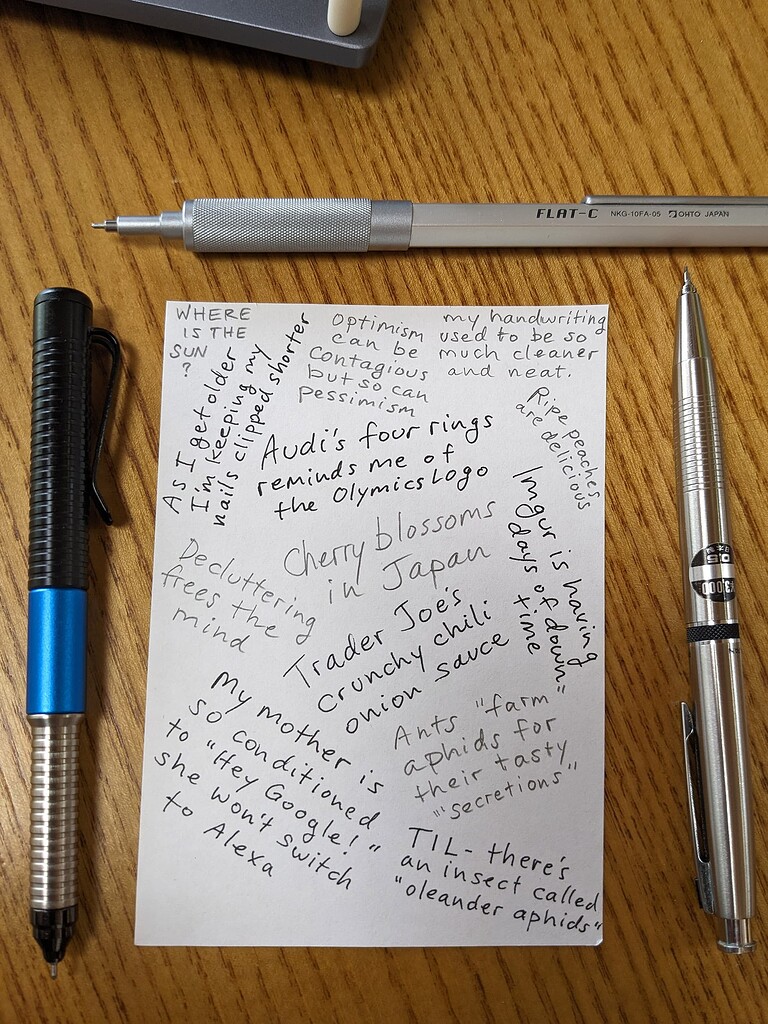 FLAT-C NKG-10FA-05 OHTO JAPAN
WHERE
IS THE
SUN
?
Optimism
can be
contagious
but so can
pessimism
my handwriting
used to be so
much cleaner
and neat.
As I get older
I'm keeping my
nails clipped shorter
Audi's four rings
reminds me of
the Olymics Logo
Ripe peaches
are delicious
Cherry blossoms
in Japan
Imgur is having
days of "down"
time
Decluttering
frees the
mind
Trader Joe's
crunchy chili
onion sauce
My mother is
so conditioned
to "Hey Google!"
she won't switch
to Alexa
Ants "farm"
aphids for
their tasty
"'secretions"
TIL- there's
an insect called
"oleander aphids"
0.5
¥3,000